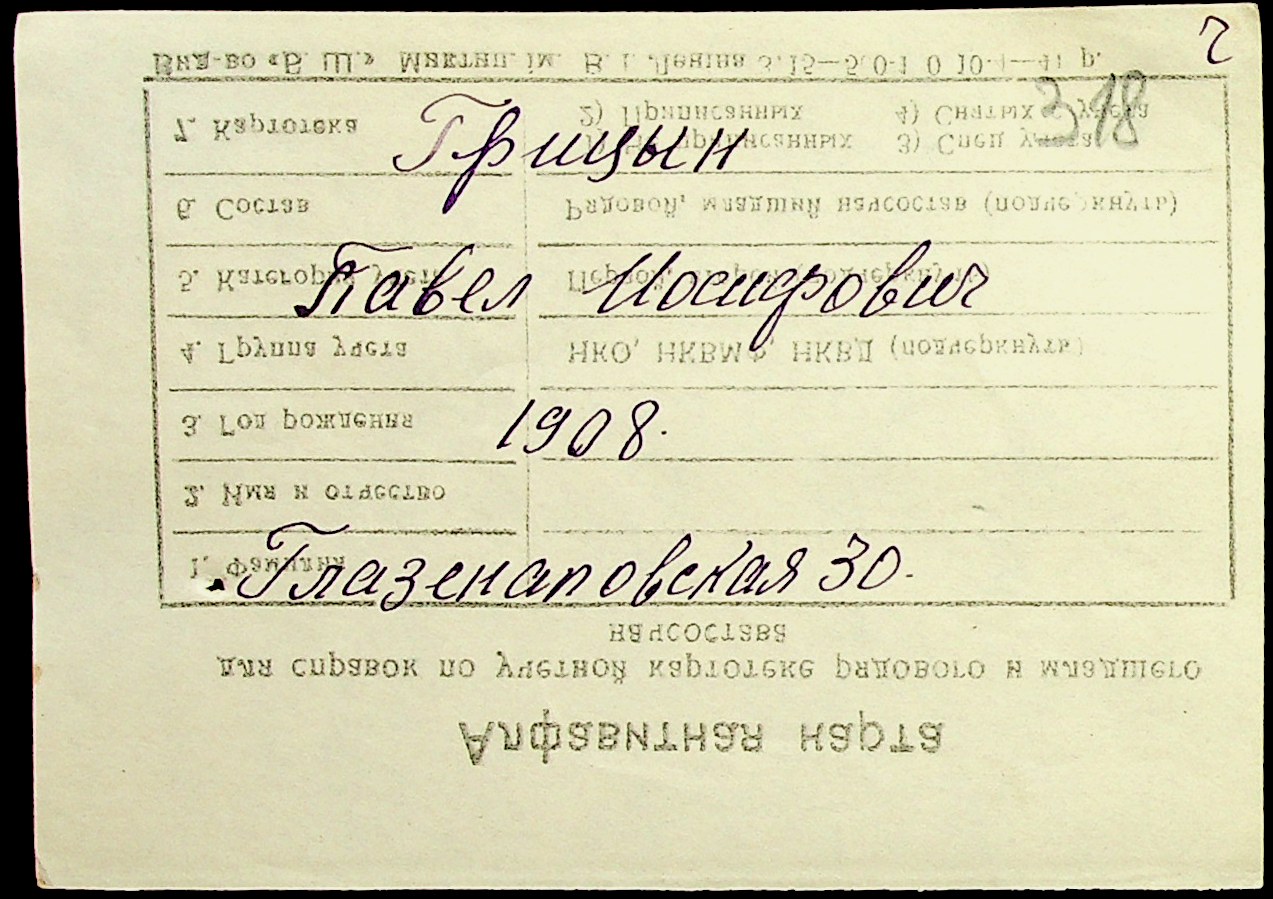 ч
Вид-во «Б. Ш.» Мактип. ім. В. І. Леніна З.15—5.0-1 0 10-4—41 р.
318
7. Картотека 2) Приписанных 4) Снятых с учета
1) Не приписанных 3) Спец учета
Грицын
6. Состав Рядовой, младший начсостав (подчеркнуть)
5. Категория учета Первой, (подчеркнуть)
Павел Иосифович
4. Группа учета НКО, НКВМФ, НКВД (подчеркнуть)
3. Год рождения
1908.
2. Имя и отчество
1. Фамилия
Глазенаповская 30.
начсостава
для справок по учетной картотеке рядового и младшего
Алфавитная карта